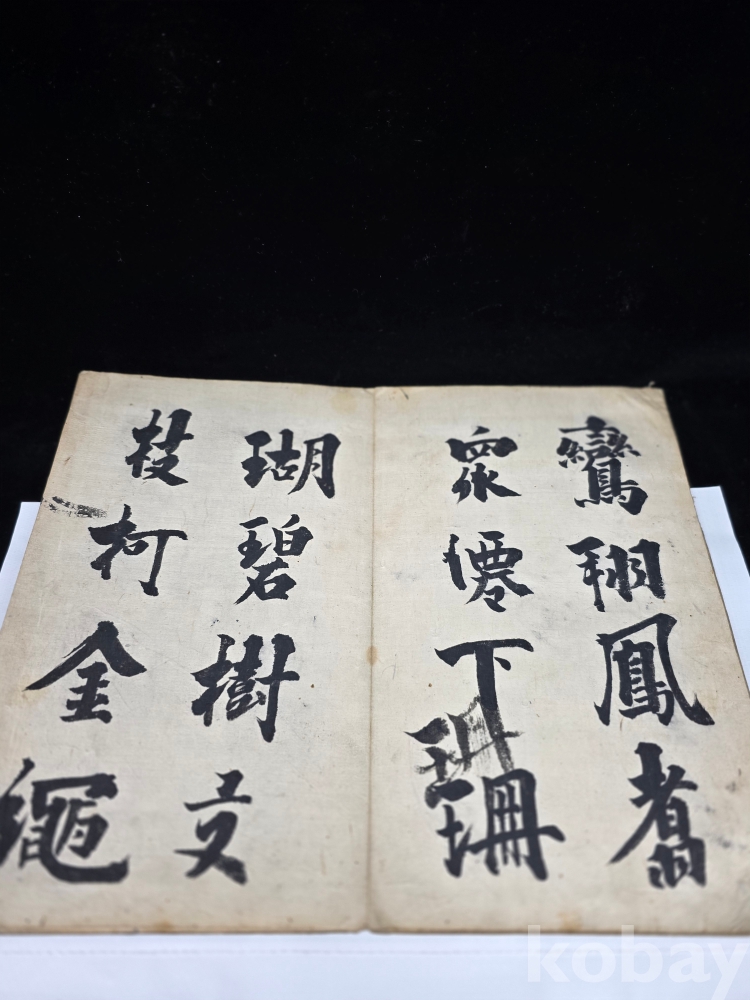 鸞翔鳳翥
衆僊下珊
瑚碧樹交
枝柯金繩
kobay